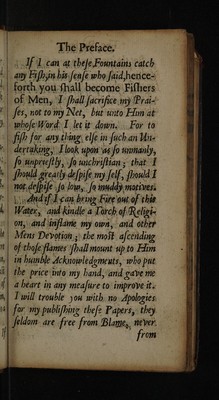 The Preface.
If I can at these Fountains catch
any Fish, in his sense who said, hence-
forth you shall become Fishers
of Men, I shall sacrifice my Prai-
ses, not to my Net, but unto Him at
whose Word I let it down. For to
fish for any thing else in such an Un-
dertaking, I look upon as so unmanly,
so unpriestly, so unchristian; that I
should greatly despise my self, should I
not despise so low, so muddy motives.
And if I can bring Fire out of this
Water, and kindle a Torch of Religi-
on, and inflame my own, and other
Mens Devotion; the most ascending
of those flames shall mount up to Him
in humble Acknowledgments, who put
the price into my hand, and gave me
a heart in any measure to improve it.
I will trouble you with no Apologies
for my publishing these Papers, they
seldom are free from Blame, never
from